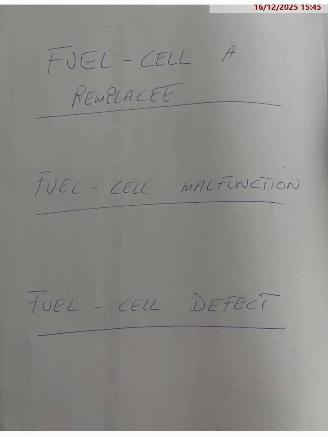 16/12/2025 15:45
FUEL-CELL A
REMPLACEE
FUEL-CELL MALFUNCTION
FUEL-CELL DEFECT